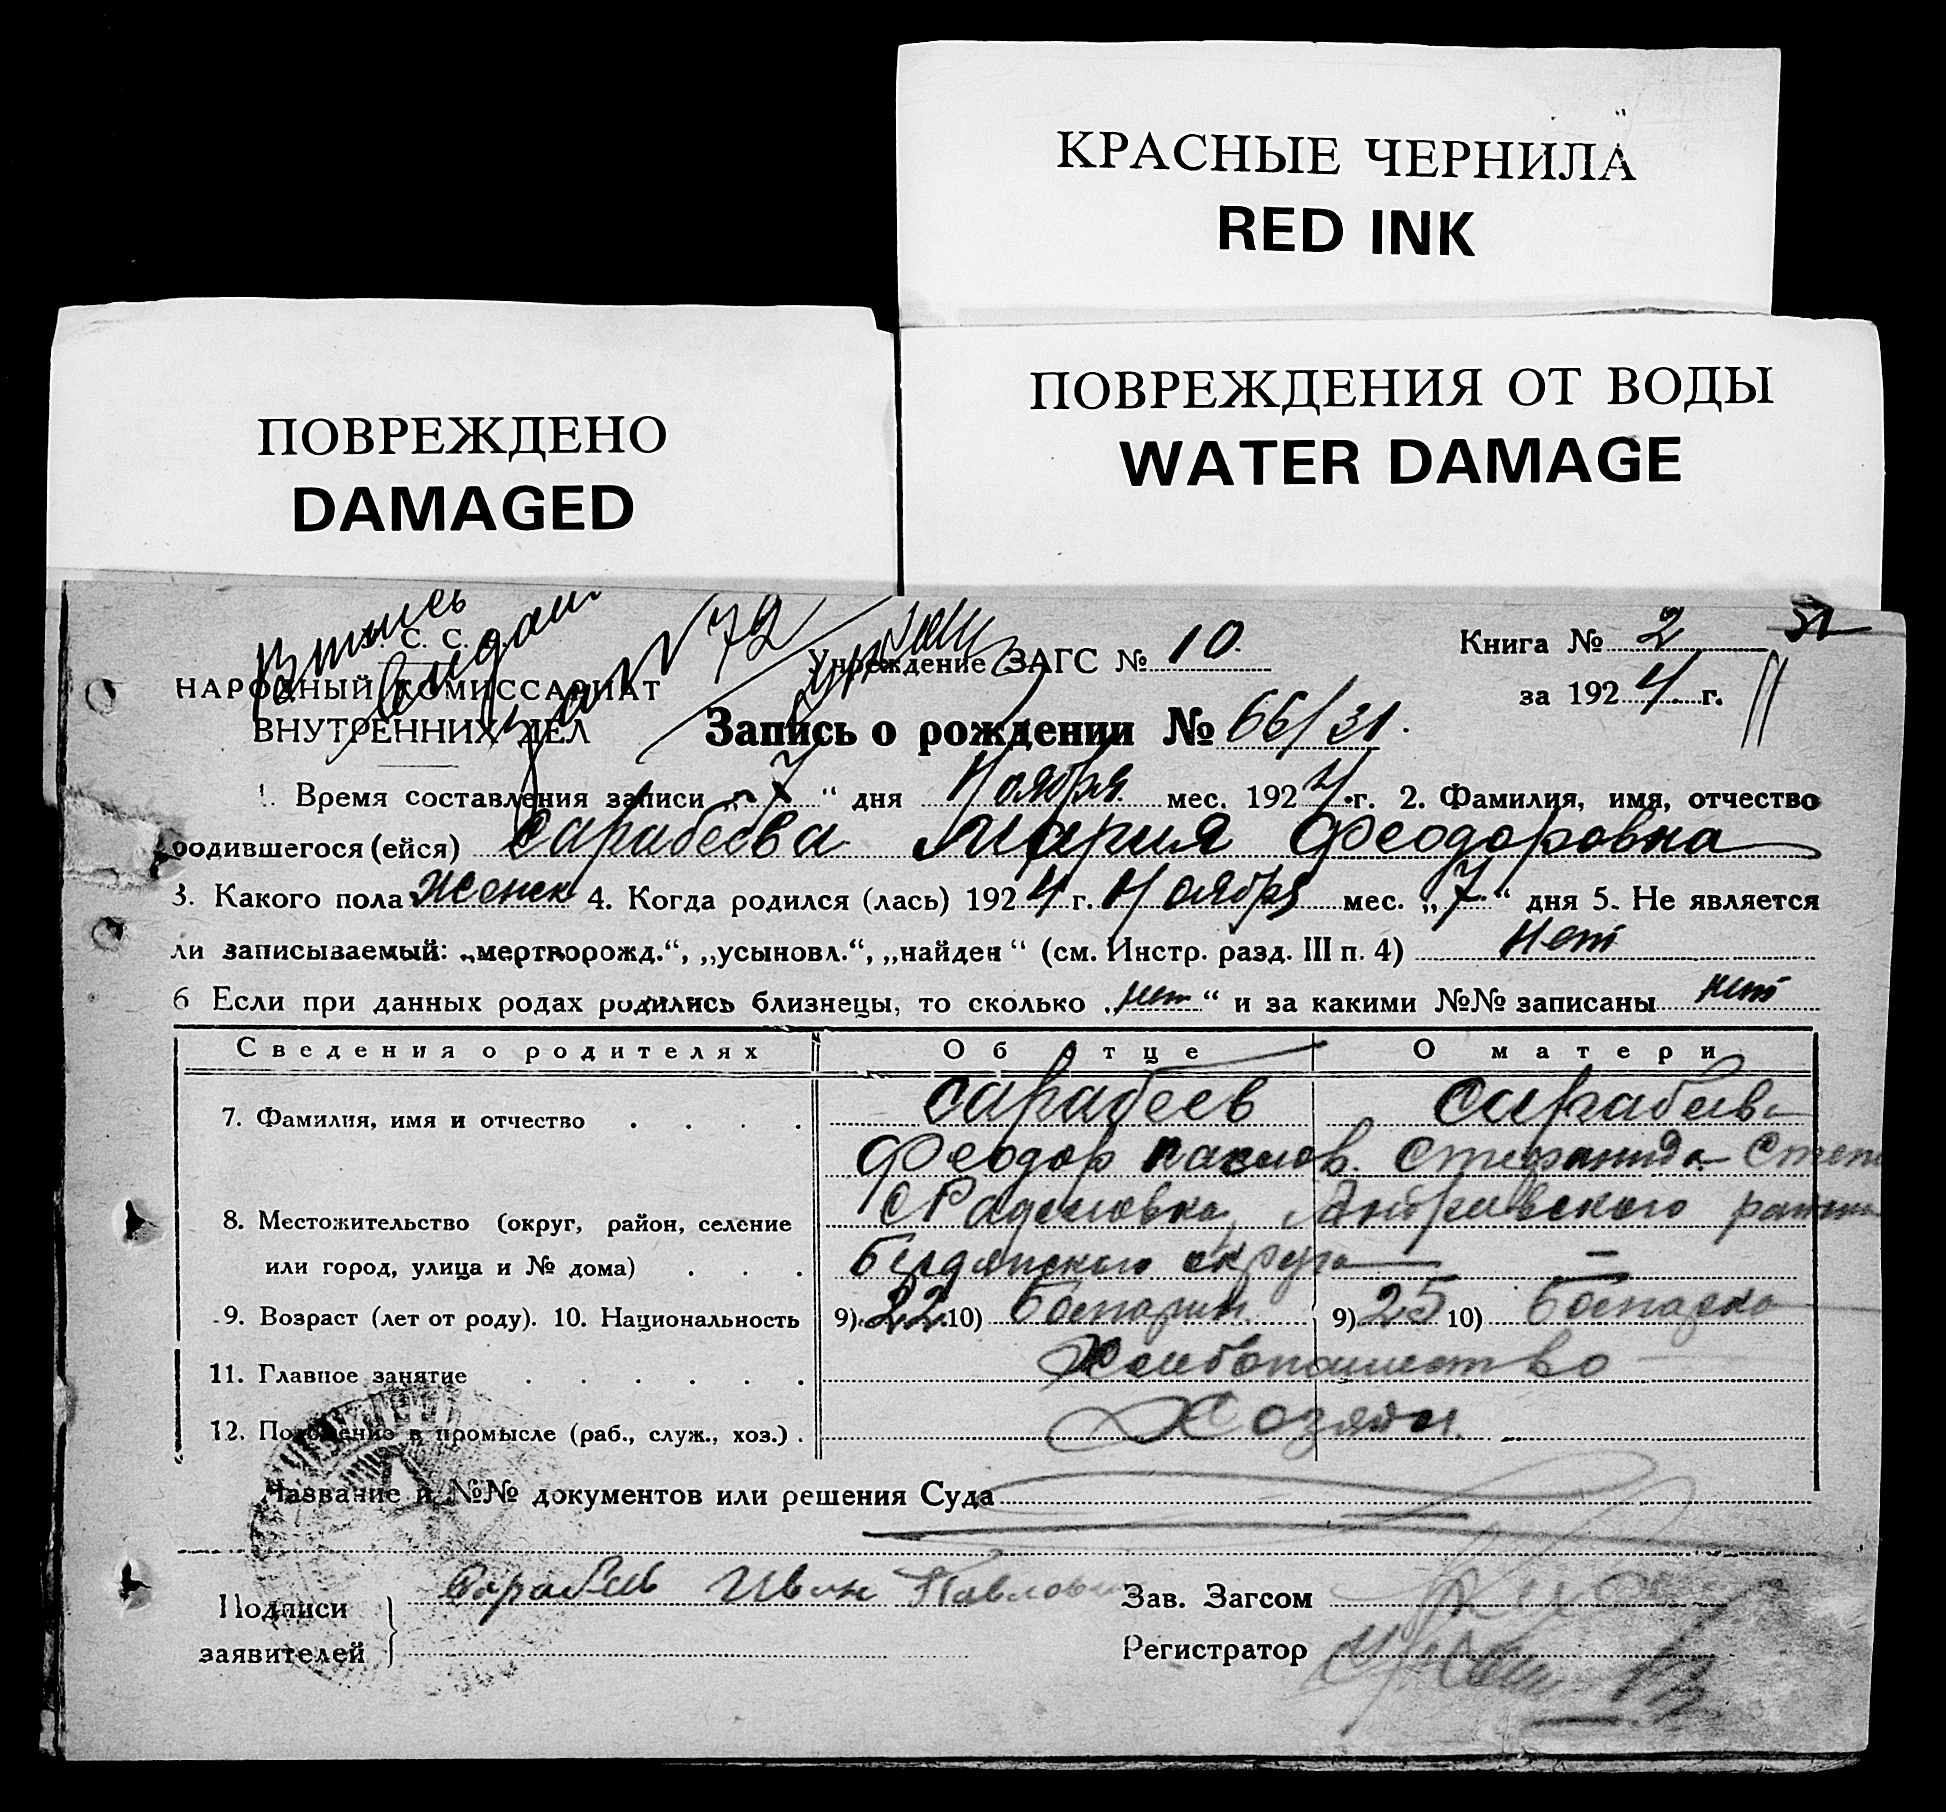 КРАСНЫЕ ЧЕРНИЛА
RED INK
ПОВРЕЖДЕНО
DAMAGED
ПОВРЕЖДЕНИЯ ОТ ВОДЫ
WATER DAMAGE
С. С.
НАРОДНЫЙ КОМИССАРИАТ
ВНУТРЕННИХ ДЕЛ
72
Учреждение ЗАГС № 10
Книга № 2
за 1924 г.
Запись о рождении № 66/31
1. Время составления записи „7“ дня Ноября мес. 1924 г. 2. Фамилия, имя, отчество
родившегося (ейся) Сарабеева Мария Феодоровна
3. Какого пола Женск 4. Когда родился (лась) 1924 г. Ноября мес. „7“ дня 5. Не является
ли записываемый: „мертворожд.“, „усыновл.“, „найден“ (см. Инстр. разд. III п. 4) Нет
6 Если при данных родах родились близнецы, то сколько „нет“ и за какими №№ записаны нет
Сведения о родителях Об отце О матери
7. Фамилия, имя и отчество Сарабеев Сарабеева
Феодор Павлов. Стефанида Степ
8. Местожительство (округ, район, селение с Радоловка, Андреевского района
или город, улица и № дома) Бердянского округа —
9. Возраст (лет от роду). 10. Национальность 9) 22 10) Болгарин 9) 25 10) Болгарка
11. Главное занятие Хлебопашество
12. Положение в промысле (раб., служ., хоз.) Хозяин
Название и №№ документов или решения Суда
Подписи
заявителей
Сарабеев Иван Павлович
Зав. Загсом
Регистратор